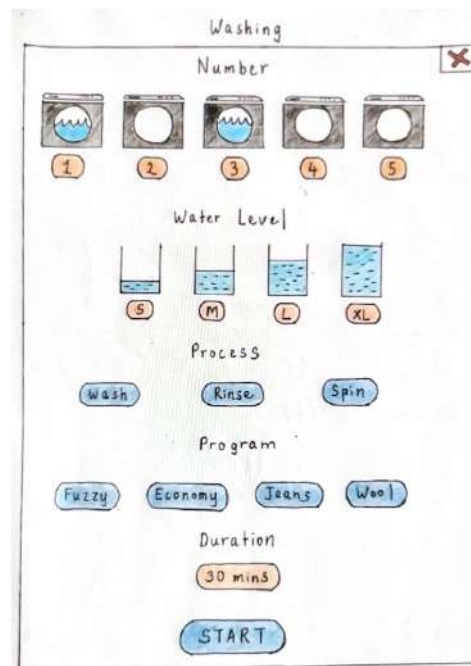 Washing
Number
1 2 3 4 5
Water Level
S M L XL
Process
Wash Rinse Spin
Program
Fuzzy Economy Jeans Wool
Duration
30 mins
START